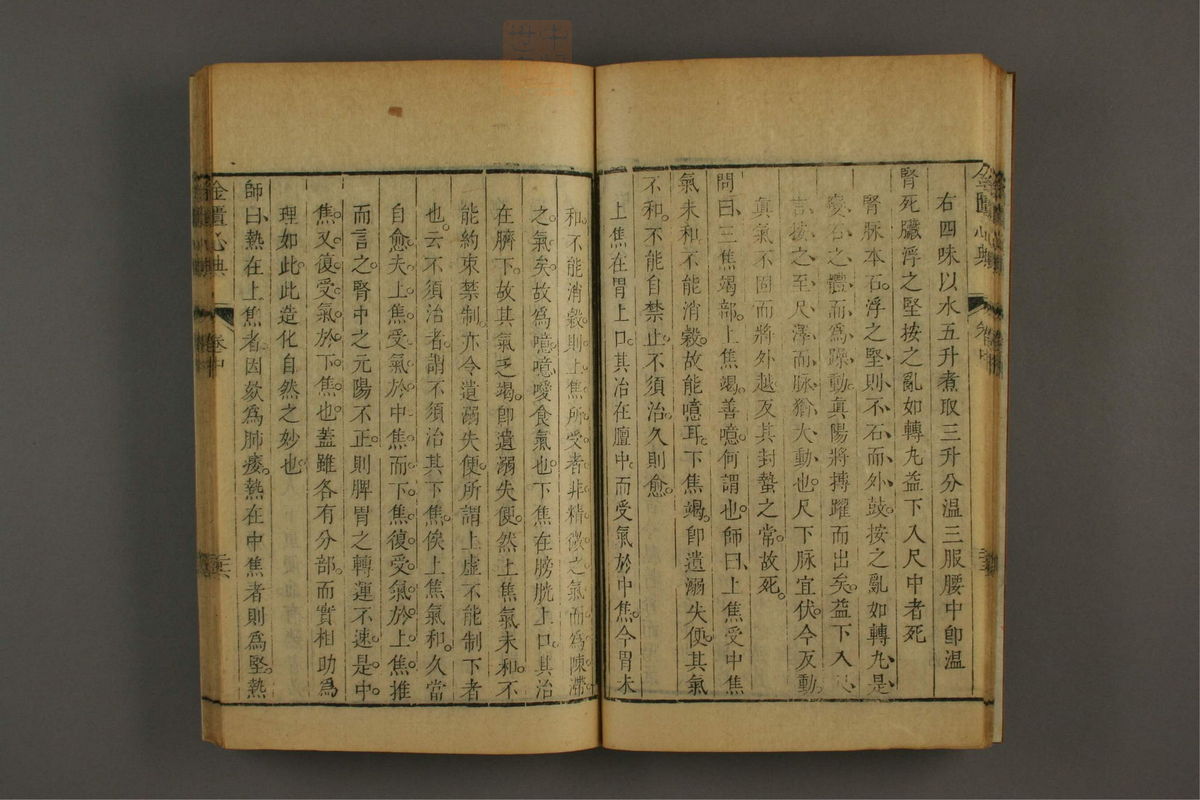 金匱心典
卷中
右四味以水五升煮取三升分溫三服腰中卽溫
腎死臟浮之堅按之亂如轉丸益下入尺中者死
腎脉本石浮之堅則不石而外鼓按之亂如轉丸是
變石之體而為躁動眞陽將搏躍而出矣益下入尺
言按之至尺澤而脉猶大動也尺下脉宜伏今反動
眞氣不固而將外越反其封蟄之常故死
問曰三焦竭部上焦竭善噫何謂也師曰上焦受中焦
氣未和不能消穀故能噫耳下焦竭卽遺溺失便其氣
不和不能自禁止不須治久則愈
上焦在胃上口其治在膻中而受氣於中焦今胃未
和不能消穀則上焦所受者非精微之氣而為陳滯
之氣矣故為噫噫噯食氣也下焦在膀胱上口其治
在臍下故其氣乏竭卽遺溺失便然上焦氣未和不
能約束禁制亦令遺溺失便所謂上虛不能制下者
也云不須治者謂不須治其下焦俟上焦氣和久當
自愈夫上焦受氣於中焦而下焦復受氣於上焦推
而言之腎中之元陽不正則脾胃之轉運不速是中
焦又復受氣於下焦也蓋雖各有分部而實相助為
理如此此造化自然之妙也
師曰熱在上焦者因欬為肺痿熱在中焦者則為堅熱
金匱心典
卷中